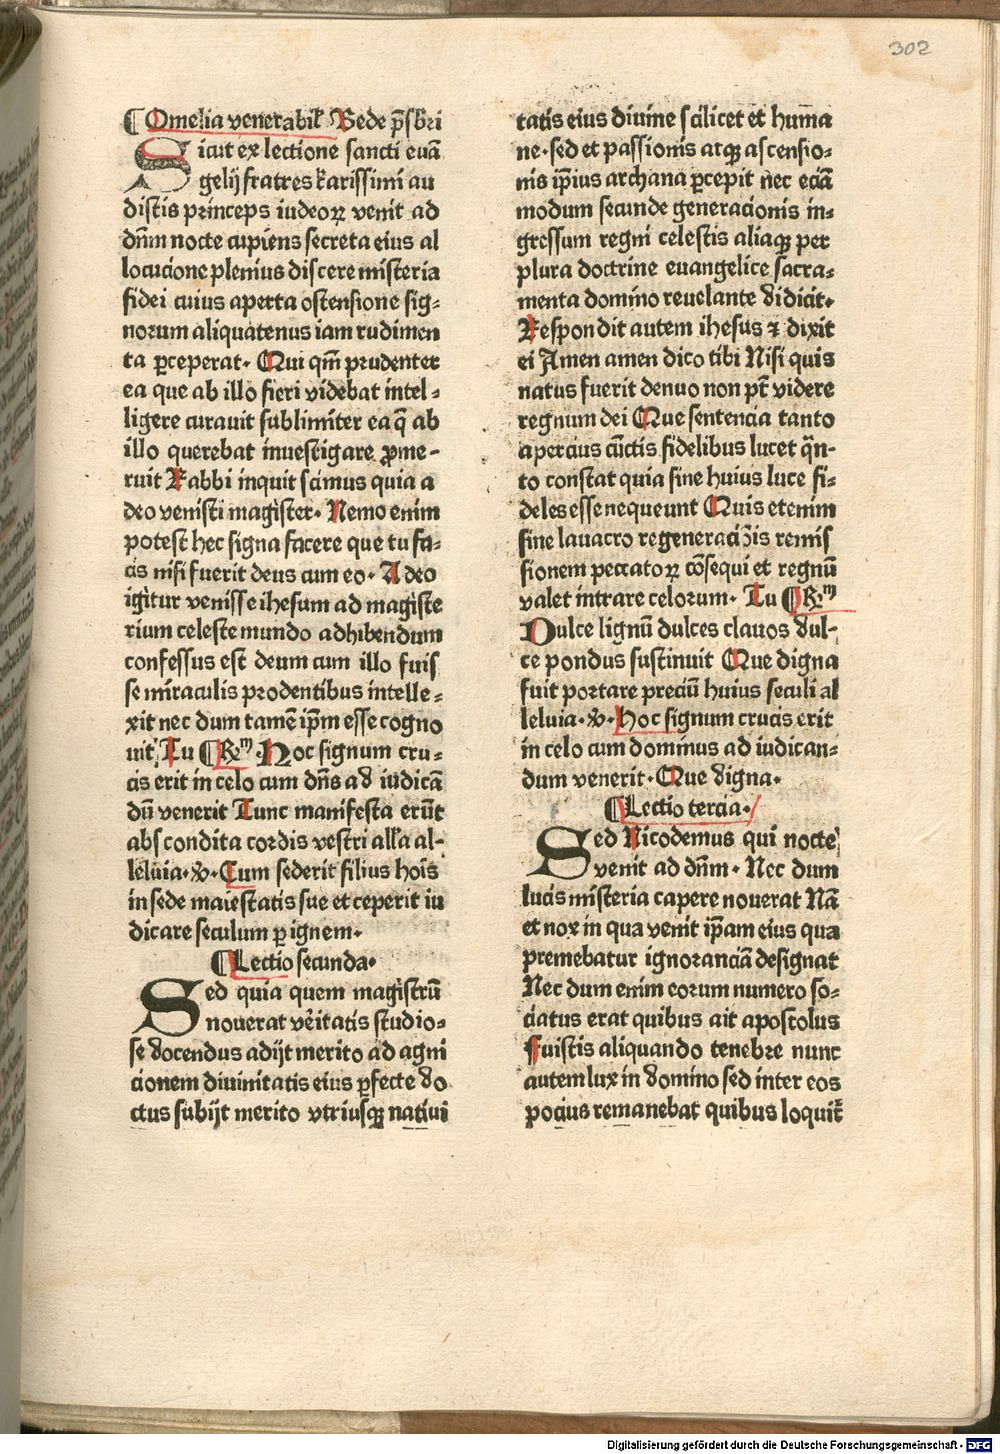 302
⸿ Omelia venerabil̄ Bede p̄sb̄ri
Sicut ex lectione sancti euā
gelij fratres karissimi au
distis princeps iudeoꝝ venit ad
dn̄m nocte cupiens secreta eius al
locucione plenius discere misteria
fidei cuius aperta ostensione sig⸗
norum aliquatenus iam rudimen
ta ꝑceperat· Qui qm̄ prudenter
ea que ab illo fieri videbat intel⸗
ligere curauit sublimiter ea q̄ ab
illo querebat inuestigare ꝓme⸗
ruit Rabbi inquit scimus quia a
deo venisti magister· Nemo enim
potest hec signa facere que tu fa⸗
cis nisi fuerit deus cum eo· Adeo
igitur venisse ihesum ad magiste
rium celeste mundo adhibendum
confessus est deum cum illo fuis
se miraculis prodentibus intelle⸗
xit nec dum tamē ip̄m esse cogno
uit Tu ⸿ R̄m Hoc signum cru⸗
cis erit in celo cum dn̄s ad iudicā
dū venerit Tunc manifesta erūt
abscondita cordis vestri all̄a al⸗
leluia· ℣· Cum sederit filius hoīs
in sede maiestatis sue et ceperit iu
dicare seculum ꝑ ignem·
⸿ Lectio secunda·
Sed quia quem magistrū
nouerat vēitatis studio⸗
se docendus adijt merito ad agni
cionem diuinitatis eius ꝑfecte do
ctus subijt merito vtriusqꝫ natiui
tatis eius diuine scilicet et huma
ne· sed et passionis atqꝫ ascensio⸗
nis ip̄ius archana ꝑcepit nec eciā
modum secunde generacionis in⸗
gressum regni celestis aliaqꝫ per
plura doctrine euangelice sacra⸗
menta domino reuelante didicit·
Respondit autem ihesus ⁊ dixit
ei Amen amen dico tibi Nisi quis
natus fuerit denuo non pt̄ videre
regnum dei Que sentencia tanto
apercius cūctis fidelibus lucet q̄n⸗
to constat quia sine huius luce fi⸗
deles esse nequeunt Quis etenim
sine lauacro regeneraciōis remis
sionem peccatoꝝ cōsequi et regnū
valet intrare celorum· Tu ⸿ R̄m
Dulce lignū dulces clauos dul⸗
ce pondus sustinuit Que digna
fuit portare preciū huius seculi al
leluia· ℣· Hoc signum crucis erit
in celo cum dominus ad iudican⸗
dum venerit· Que digna·
⸿ Lectio tercia·
Sed Nicodemus qui nocte
venit ad dn̄m· Nec dum
lucis misteria capere nouerat Nā
et nox in qua venit ip̄am eius qua
premebatur ignoranciā designat
Nec dum enim eorum numero so⸗
ciatus erat quibus ait apostolus
Fuistis aliquando tenebre nunc
autem lux in domino sed inter eos
pocius remanebat quibus loquit̄
Digitalisierung gefördert durch die Deutsche Forschungsgemeinschaft - DFG